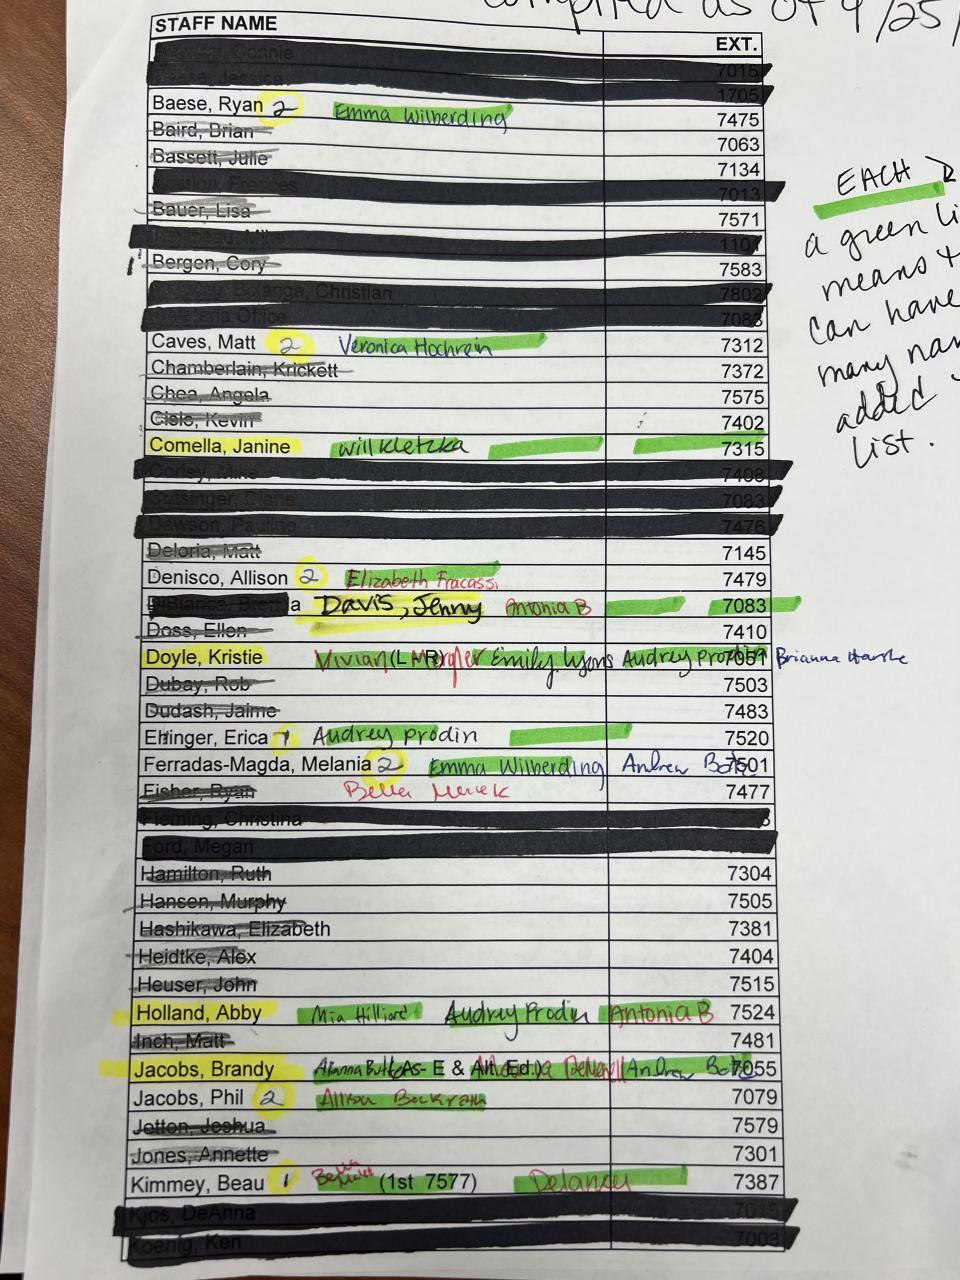 compiled as of 9/25/
STAFF NAME EXT.
Connie 7015
Jessica 1705
Baese, Ryan 2 Emma Wilberding 7475
Baird, Brian 7063
Bassett, Julie 7134
7013
Bauer, Lisa 7571
1107
1 Bergen, Cory 7583
Christian 7802
Office 7083
Caves, Matt 2 Veronica Hochrein 7312
Chamberlain, Krickett 7372
Chea, Angela 7575
Cisle, Kevin 7402
Comella, Janine Will Kletzka 7315
Corley, Mike 7408
Cutsinger, Diane 7083
Dawson, Pauline 7476
Deloria, Matt 7145
Denisco, Allison 2 Elizabeth Fracassi 7479
DiBlanca, Brenda Davis, Jenny Antonia B 7083
Doss, Ellen 7410
Doyle, Kristie Vivian (LHR) Emily Lyons Audrey Prodin 7051 Brianna
Dubay, Rob 7503
Dudash, Jaime 7483
Ehinger, Erica 1 Audrey Prodin 7520
Ferradas-Magda, Melania 2 Emma Wilberding Andrew 7501
Fisher, Ryan Bella 7477
Fleming, Christina
Ford, Megan
Hamilton, Ruth 7304
Hansen, Murphy 7505
Hashikawa, Elizabeth 7381
Heidtke, Alex 7404
Heuser, John 7515
Holland, Abby Mia Hilliard Audrey Prodin Antonia B 7524
Inch, Matt 7481
Jacobs, Brandy Alanna (AS-E & Alt. Ed.) Andrew 7055
Jacobs, Phil 2 Allison Beckrath 7079
Jetton, Joshua 7579
Jones, Annette 7301
Kimmey, Beau 1 (1st 7577) Delaney 7387
Kjos, DeAnna 7015
Koenig, Ken 7003
EACH
a green li
means t
can have
many nam
added
list.